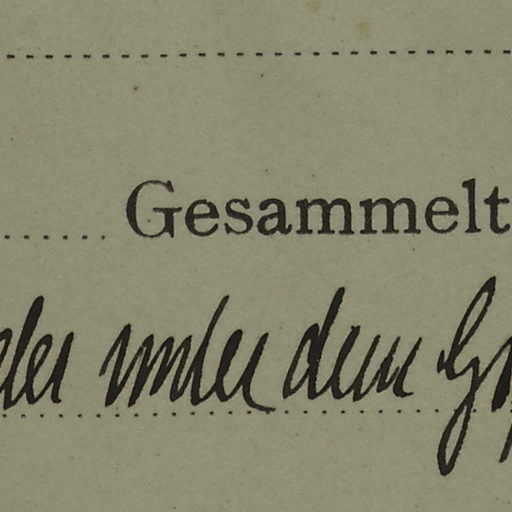 Gesammelt
unter dem